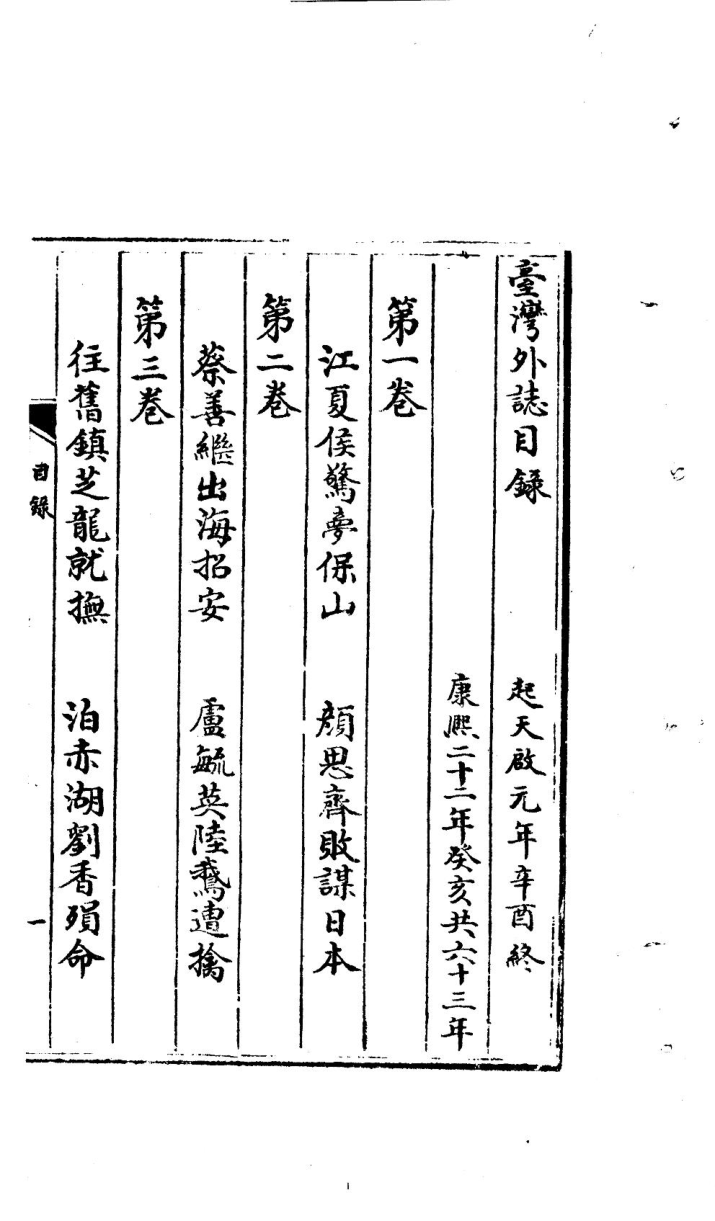 臺灣外誌目錄　起天啟元年辛酉終
康熙二十二年癸亥共六十三年
第一卷
江夏侯驚夢保山　顏思齊敗謀日本
第二卷
蔡善繼出海招安　盧毓英陸鵞遭擒
第三卷
往舊鎮芝龍就撫　泊赤湖劉香殞命
目錄
一